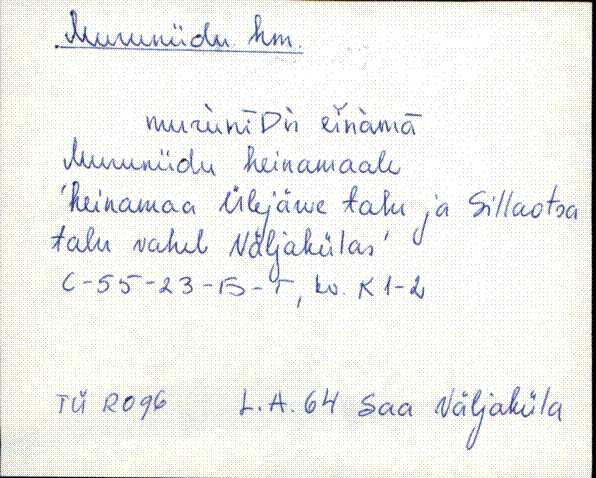 Muruniidu hm.
murùnīDù eĭnàmā
Muruniidu heinamaale
'heinamaa Ülejäwe talu ja Sillaotsa
talu vahel Näljakülas'
C-55-23-Б-Г, kv. K1-2
TÜ R096 L.A. 64 Saa Näljaküla